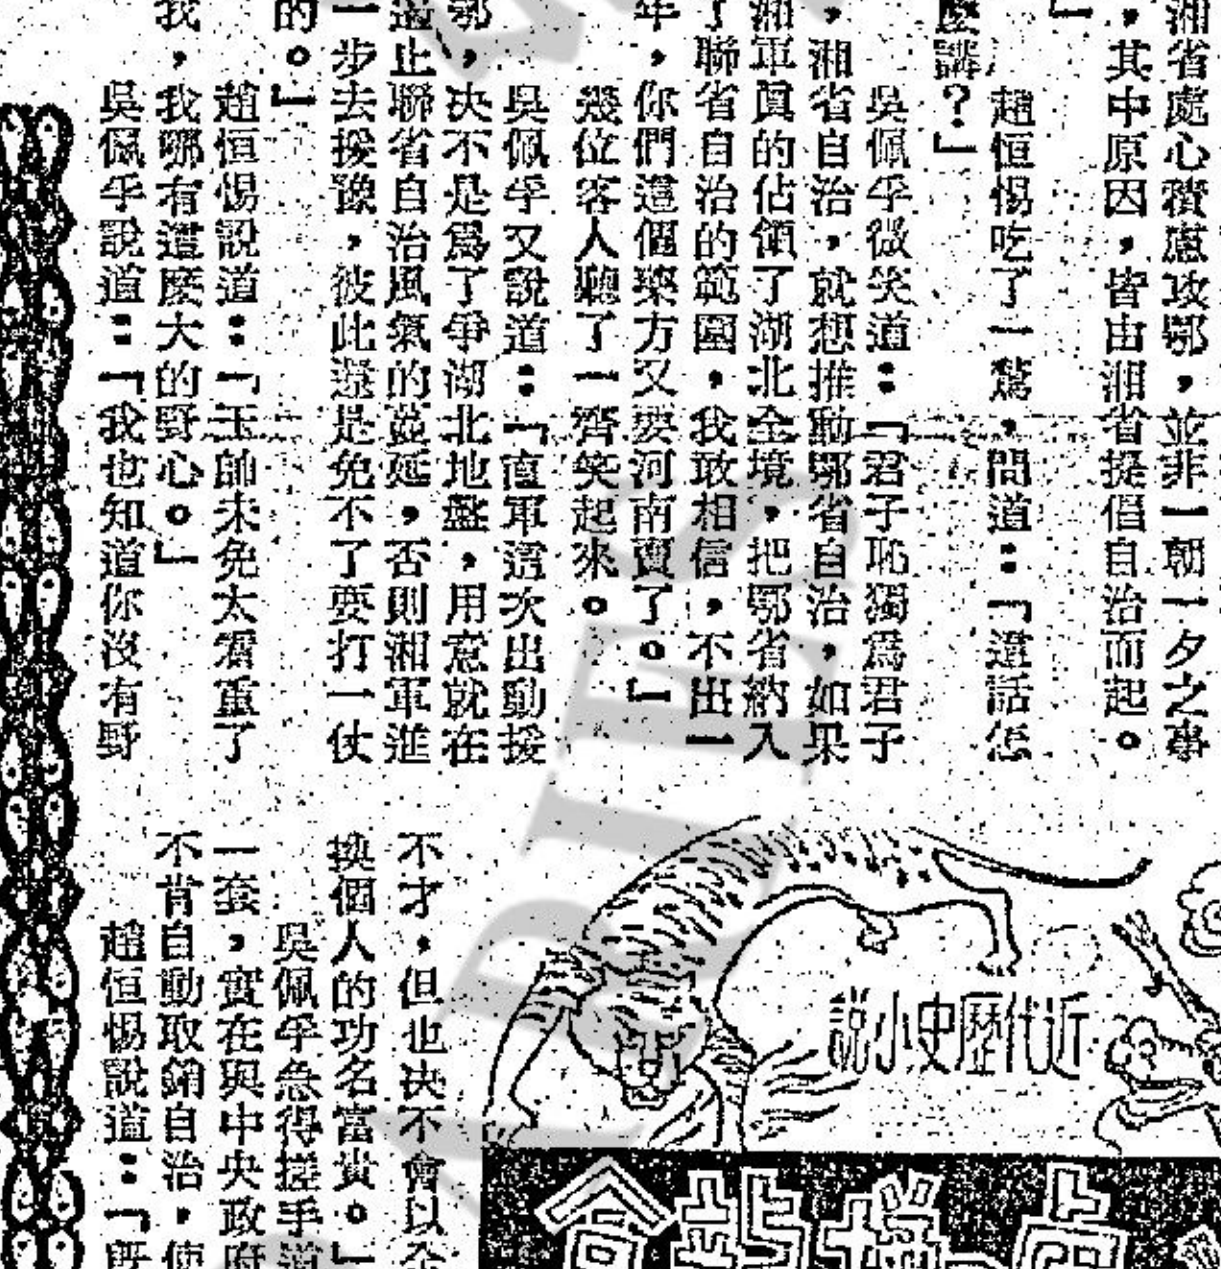 湘省處心積慮攻鄂，並非一朝一夕之事
，其中原因，皆由湘省提倡自治而起。
」
趙恒惕吃了一驚，問道：「這話怎
麼講？」
吳佩孚微笑道：「君子恥獨爲君子
，湘省自治，就想推動鄂省自治，如果
湘軍眞的佔領了湖北全境，把鄂省納入
了聯省自治的範圍，我敢相信，不出一
年，你們這個藥方又要河南賣了。」
幾位客人聽了一齊笑起來。
吳佩孚又說道：「直軍這次出動援
鄂，决不是爲了爭湖北地盤，用意就在
遏止聯省自治風氣的蔓延，否則湘軍進
一步去援豫，彼此還是免不了要打一仗
的。」
趙恒惕說道：「玉帥未免太看重了
我，我哪有這麼大的野心。」
吳佩孚說道：「我也知道你沒有野
近代歷史小說
不才，但也决不會以公
換個人的功名富貴。」
吳佩孚急得搓手道
一套，實在與中央政府
不肯自動取銷自治，使
趙恒惕說道：「既